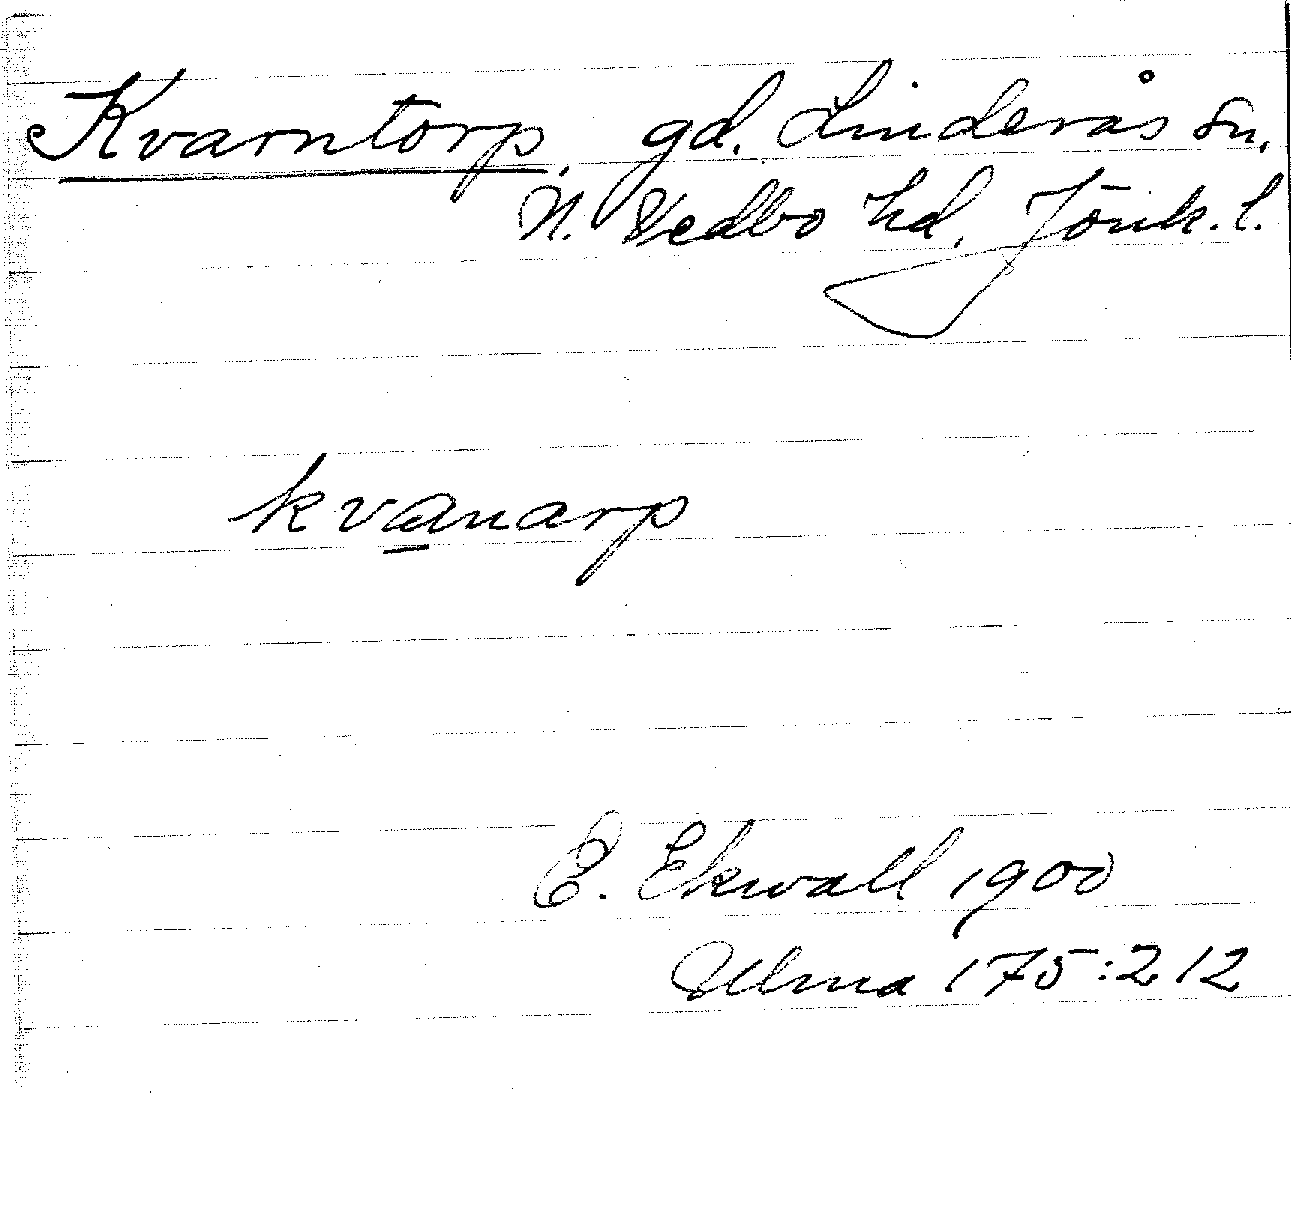 Kvarntorp, gd. Linderås sn.
N. Vedbo hd. Jönk. l.
kvanarp
E. Ekwall 1900
Ulma 175:212